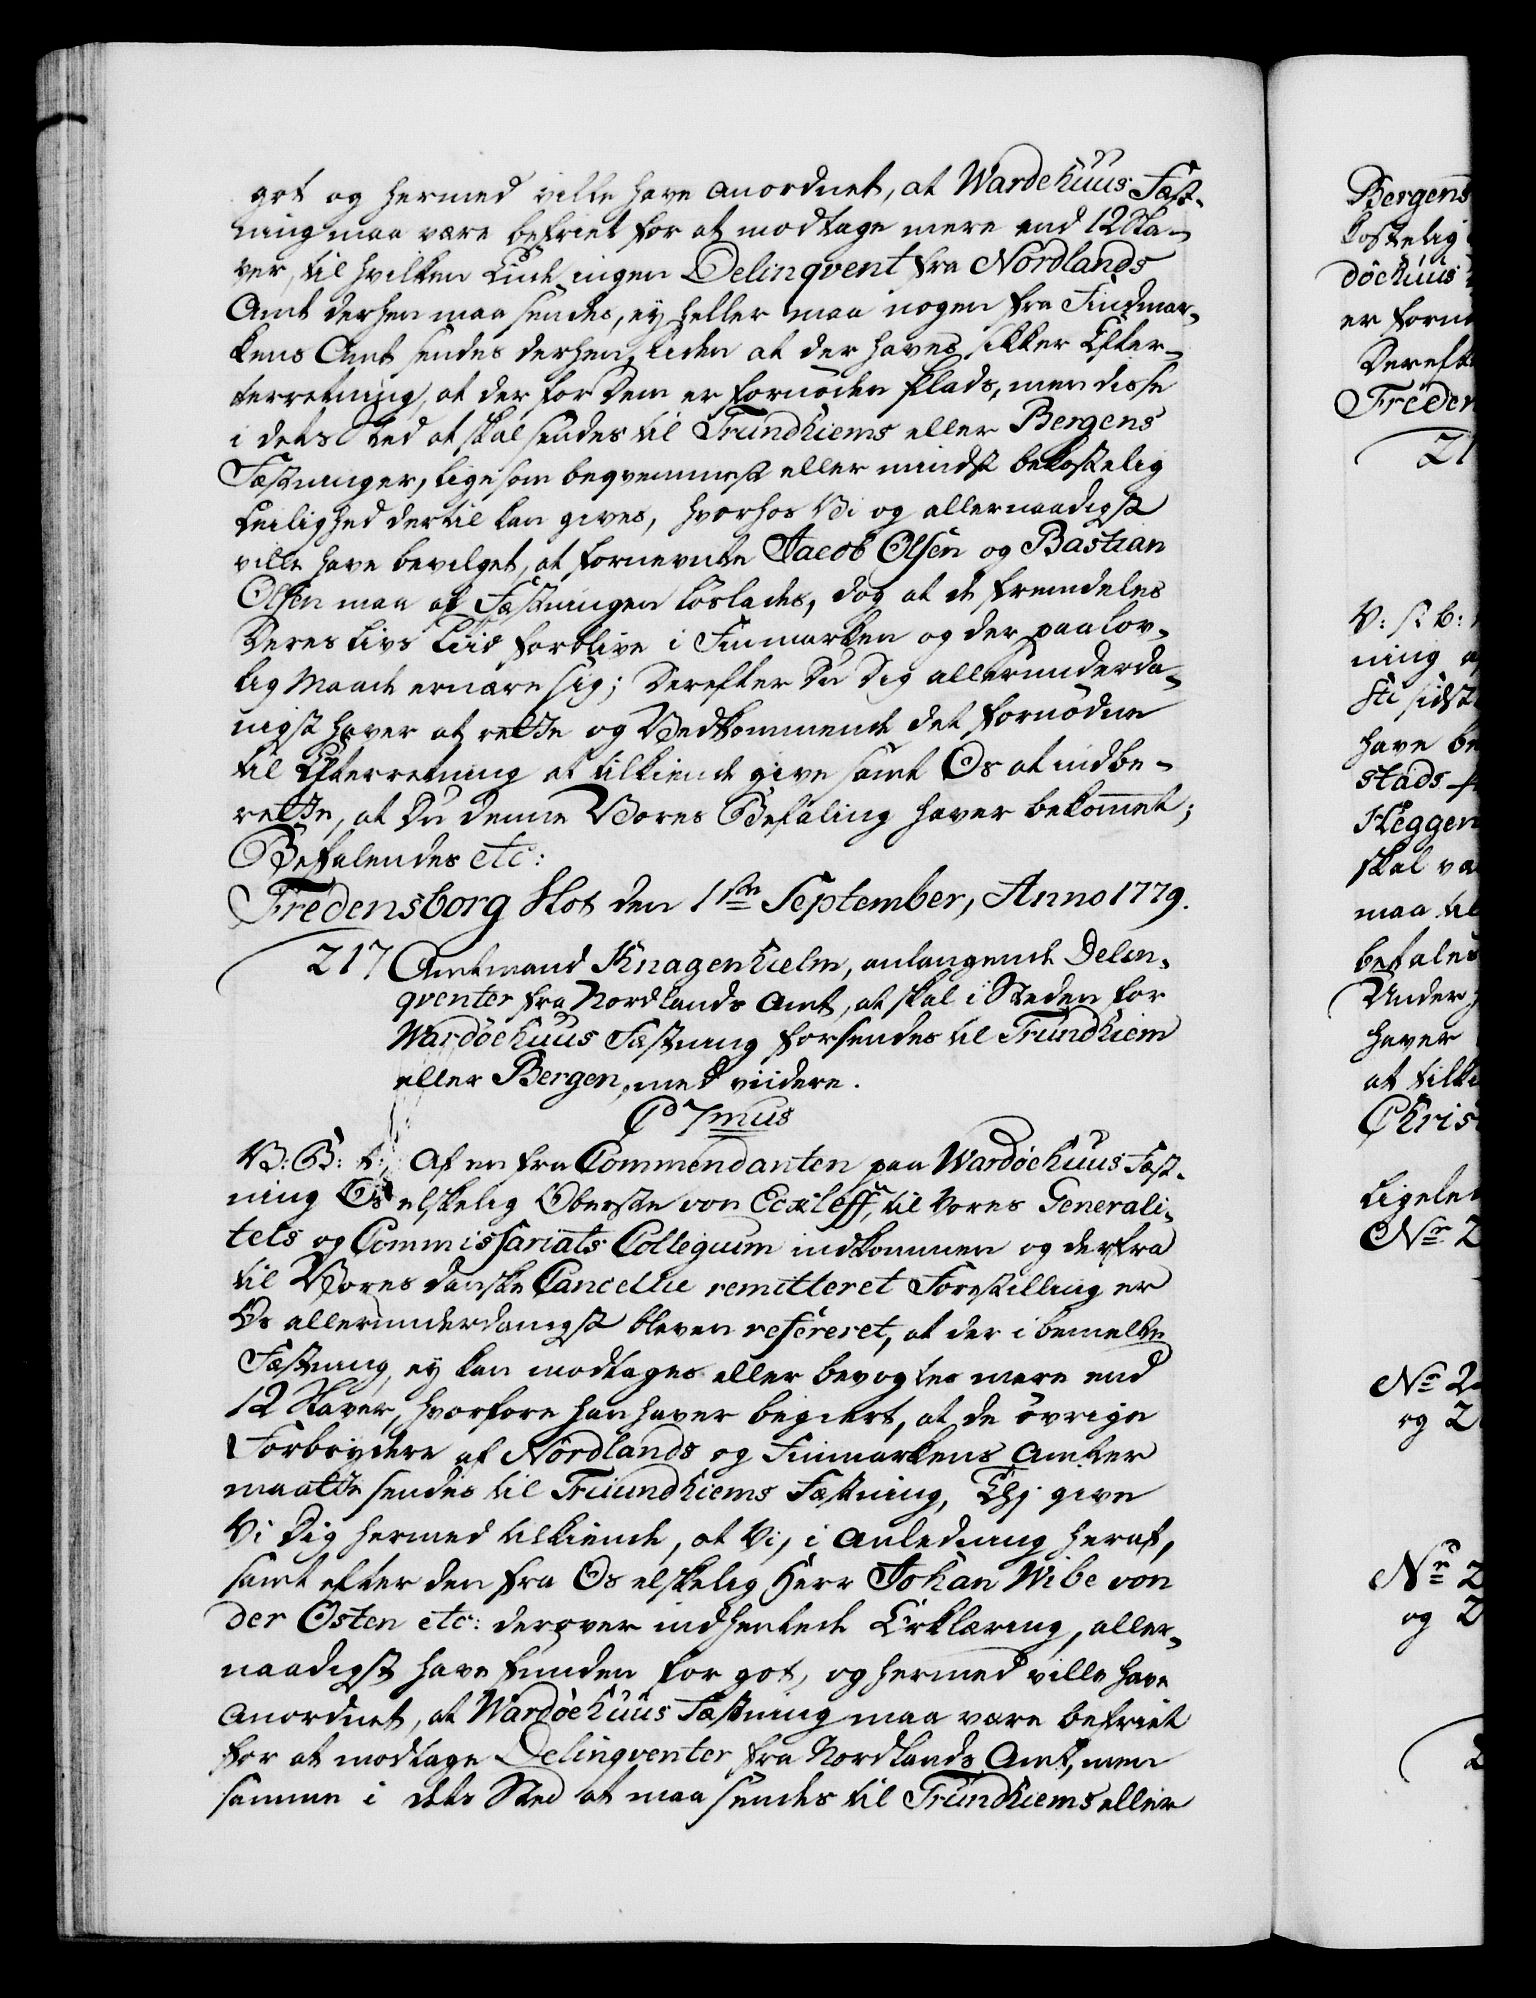 got og hermed ville have anordnet, at Wardehuus Fæst-
ning maa være befriet for at modtage mere end 12 Sla-
ver, til hvilken Ende ingen Delinqvent fra Nordlands
Amt derhen maa sendes, ey heller maa nogen fra Findmar-
kens Amt sendes derhen, uden at der haves sikker Efter-
terretning, at der for dem er fornöden Plads, men disse
i dets Sted at skal sendes til Trundhiems eller Bergens
Fæstninger, ligesom beqvemmest eller mindst bekostelig
Leilighed dertil kan gives, hvorhos Vi og allernaadigst
ville have bevilget, at fornevnte Jacob Olsen og Bastian
Olsen maa af Fæstningen löslades, dog at de fremdeles
Deres Livs Tiid forblive i Finmarken og der paa lov-
lig Maade ernære sig; Derefter Du Dig allerunderda-
nigst haver at rette og Vedkommende det fornödne
til Efterretning at tilkiende give samt Os at indbe-
rette, at Du denne Vores Befaling haver bekommet;
Befalendes etc:
Fredensborg Slot den 1ste September, Anno 1779.
217 Amtmand Knagenhielm, anlangende Delin-
qventer fra Nordlands Amt, at skal i Steden for
Wardöehuus Fæstning forsendes til Trundhiem
eller Bergen, med viidere.
C 7mus
V: G: t: Af en fra Commendanten paa Wardöehuus Fæst-
ning Os elskelig Oberste von Eckleff, til Vores Generali-
tets og Commissariats Collegium indkommen og derfra
til Vores danske Cancellie remitteret Forestilling er
Os allerunderdanigst bleven refereret, at der i bemelte
Fæstning, ey kan modtages eller bevogtes mere end
12 Slaver, hvorfore han haver begiert, at de övrige
Forbrydere af Nordlands og Finmarkens Amter
maatte sendes til Truundhiems Fæstning, Thj give
Vi Dig hermed tilkiende, at Vi, i Anledning heraf,
samt efter den fra Os elskelig Herr Johan Wibe von
der Osten etc: derover indhentede Erklæring, aller-
naadigst have funden for got, og hermed ville have
anordnet, at Wardöehuus Fæstning maa være befriet
for at modtage Delinqventer fra Nordlands Amt, men
samme i dets Sted at maa sendes til Trundhiems eller
Bergens
kostelig
döehuus
er forn
Dereft
Freden
21
ning
sti sidst
have be
stads
Heggen
skal væ
maa til
befales
Under
haver
at tilki
Chris
Ligele
No 2
No 2
og 2
No 2
og 2
2